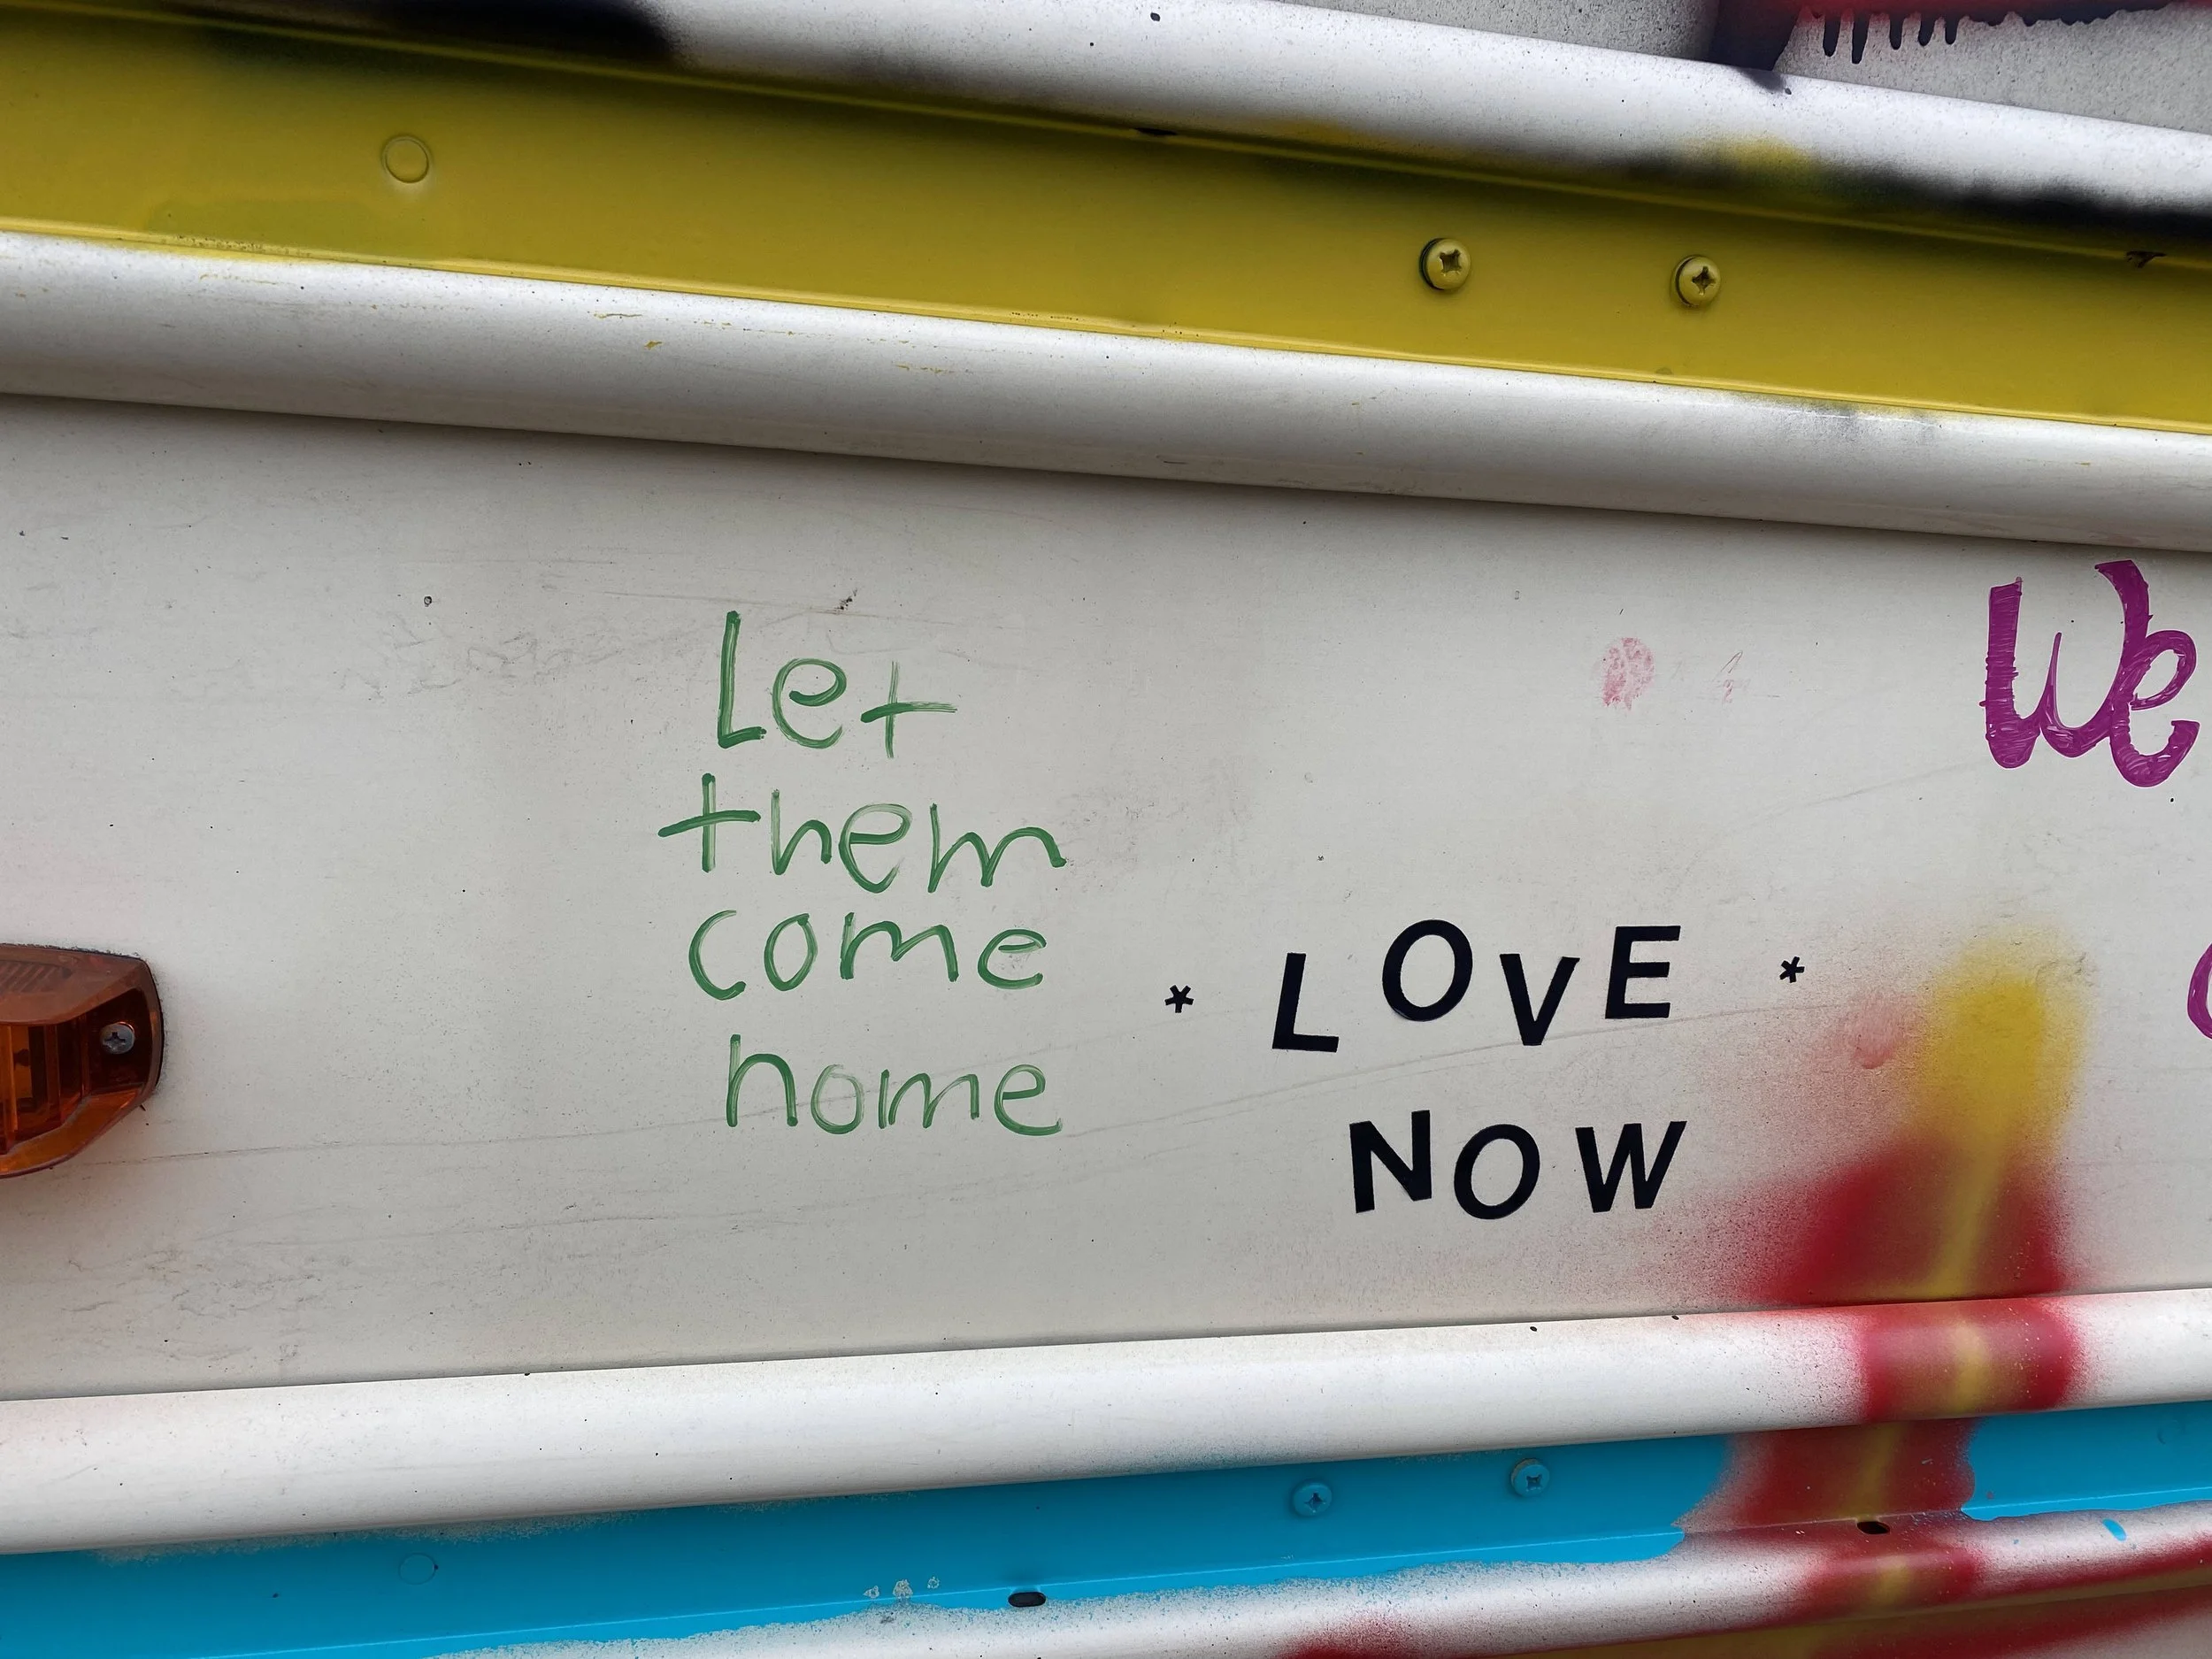 Let
them
come
home
* LOVE *
NOW
We